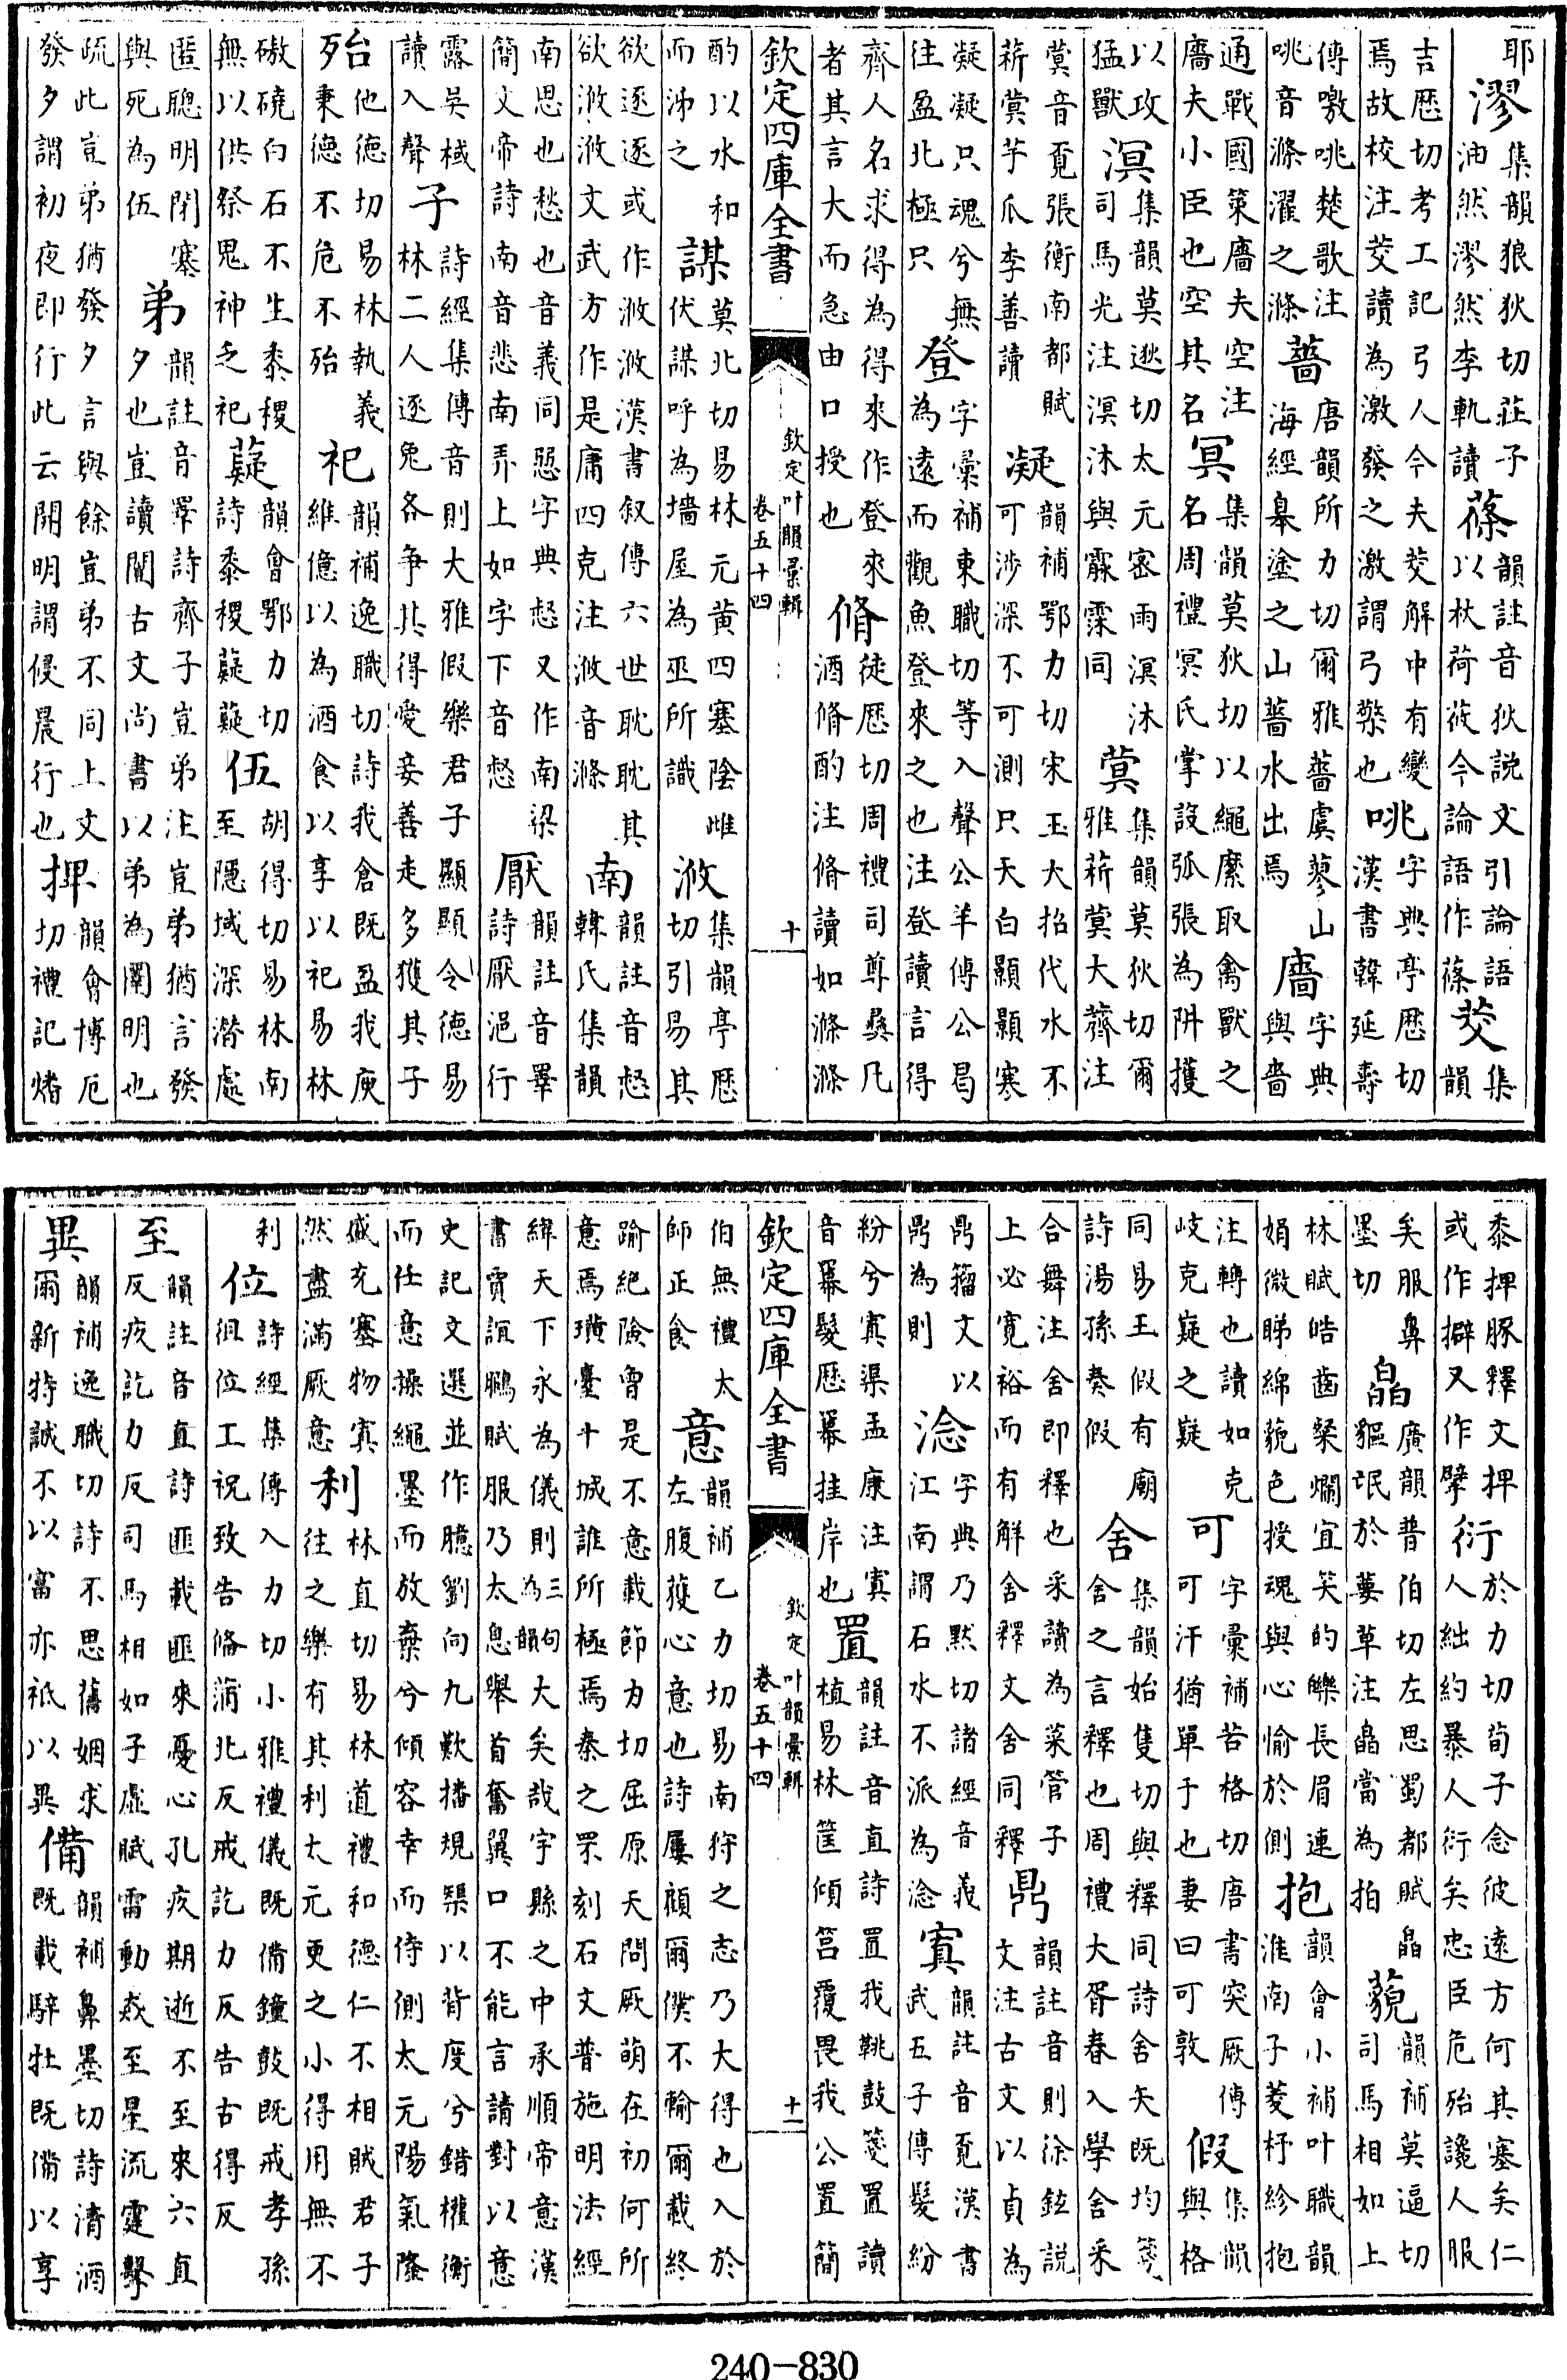 耶漻集韻狼狄切莊子油然漻然李軌讀蓧韻註音狄説文引論語以杖荷莜今論語作蓧茭集韻
吉歴切考工記弓人今夫茭解中有變焉故校注茭讀為激發之激謂弓檠也咷字典亭歴切漢書韓延壽
傳噭咷楚歌注咷音滌濯之滌薔唐韻所力切爾雅薔虞蓼山海經臯塗之山薔水出焉廧字典與嗇
通戰國策廧夫空注廧夫小臣也空其名冥集韻莫狄切以繩縻取禽獸之名周禮冥氏掌設弧張為阱擭
以攻猛獸溟集韻莫逖切太元密雨溟沐司馬光注溟沐與霢霂同蓂集韻莫狄切爾雅菥蓂大薺注
蓂音覓張衡南都賦菥蓂芋爪李善讀凝韻補鄂力切宋玉大招代水不可涉深不可測只天白顥顥寒
凝凝只魂兮無往盈北極只登字彙補東職切等入聲公羊傳公曷為遠而觀魚登來之也注登讀言得
齊人名求得為得來作登來者其言大而急由口授也脩徒歴切周禮司尊彝凡酒脩酌注脩讀如滌滌
欽定四庫全書 欽定叶韻彙輯 卷五十四 十
酌以水和而沸之謀莫北切易林元黄四塞陰雌伏謀呼為墻屋為巫所識浟集韻亭歴切引易其
欲逐逐或作浟浟漢書叙傳六世耽耽其欲浟浟文武方作是庸四克注浟音滌南韻註音惄韓氏集韻
南思也愁也音義同惡字典惄又作南梁簡文帝詩南音悲南弄上如字下音惄厭韻註音羃詩厭浥行
露吴棫讀入聲子詩經集傳音則大雅假樂君子顯顯令德易林二人逐兔各争其得愛妾善走多獲其子
殆他德切易林執義秉德不危不殆祀韻補逸職切詩我倉既盈我庾維億以為酒食以享以祀易林
礉磽白石不生黍稷無以供祭鬼神乏祀薿韻會鄂力切詩黍稷薿薿伍胡得切易林南至隱域深潛處
匿聰明閉塞與死為伍弟韻註音睪詩齊子豈弟注豈弟猶言發夕也豈讀闓古文尚書以弟為闓明也
疏此豈弟猶發夕言與餘豈弟不同上文發夕謂初夜即行此云開明謂侵晨行也捭韻會博厄切禮記燔
黍捭豚釋文捭或作擗又作擘衍於力切荀子念彼遠方何其塞矣仁人絀約暴人衍矣忠臣危殆讒人服
矣服鼻墨切皛廣韻普伯切左思蜀都賦皛貙氓於葽草注皛當為拍藐韻補莫逼切司馬相如上
林賦皓齒粲爛宜笑的皪長眉連娟微睇綿藐色授魂與心愉於側抱韻會小補叶職韻淮南子菱杼紾抱
注轉也讀如克岐克嶷之嶷可字彙補苦格切唐書突厥傳可汗猶單于也妻曰可敦假集韻與格
同易王假有廟詩湯孫奏假舍集韻始隻切與釋同詩舍矢既均箋舍之言釋也周禮大胥春入學舍采
合舞注舍即釋也采讀為菜管子上必寛裕而有解舍釋文舍同釋鼎韻註音則徐鉉説文注古文以貞為
鼎籀文以鼎為則淰字典乃黙切諸經音義江南謂石水不派為淰寘韻註音覓漢書武五子傳髮紛
紛兮寘渠孟康注寘音羃髮歴羃挂岸也置韻註音直詩置我鞉鼓箋置讀植易林筐傾筥覆畏我公置簡
欽定四庫全書 欽定叶韻彙輯 卷五十四 十一
伯無禮太師正食意韻補乙力切易南狩之志乃大得也入於左腹獲心意也詩屢顧爾僕不輸爾載終
踰絶險曾是不意載節力切屈原天問厥萌在初何所意焉璜臺十成誰所極焉秦之罘刻石文普施明法經
緯天下永為儀則三句為韻大矣哉宇縣之中承順帝意漢書賈誼鵩賦服乃太息舉首奮翼口不能言請對以意
史記文選並作臆劉向九歎播規榘以背度兮錯權衡而任意操繩墨而放棄兮傾容幸而侍側太元陽氣隆
盛充塞物寘然盡滿厥意利林直切易林道禮和德仁不相賊君子往之樂有其利太元更之小得用無不
利位詩經集傳入力切小雅禮儀既備鐘鼓既戒孝孫徂位工祝致告備蒲北反戒訖力反告古得反
至韻註音直詩匪載匪來憂心孔疚期逝不至來六直反疚訖力反司馬相如子虛賦雷動猋至星流霆擊
異韻補逸職切詩不思舊姻求爾新特誠不以富亦祇以異備韻補鼻墨切詩清酒既載騂牡既備以享
240-830